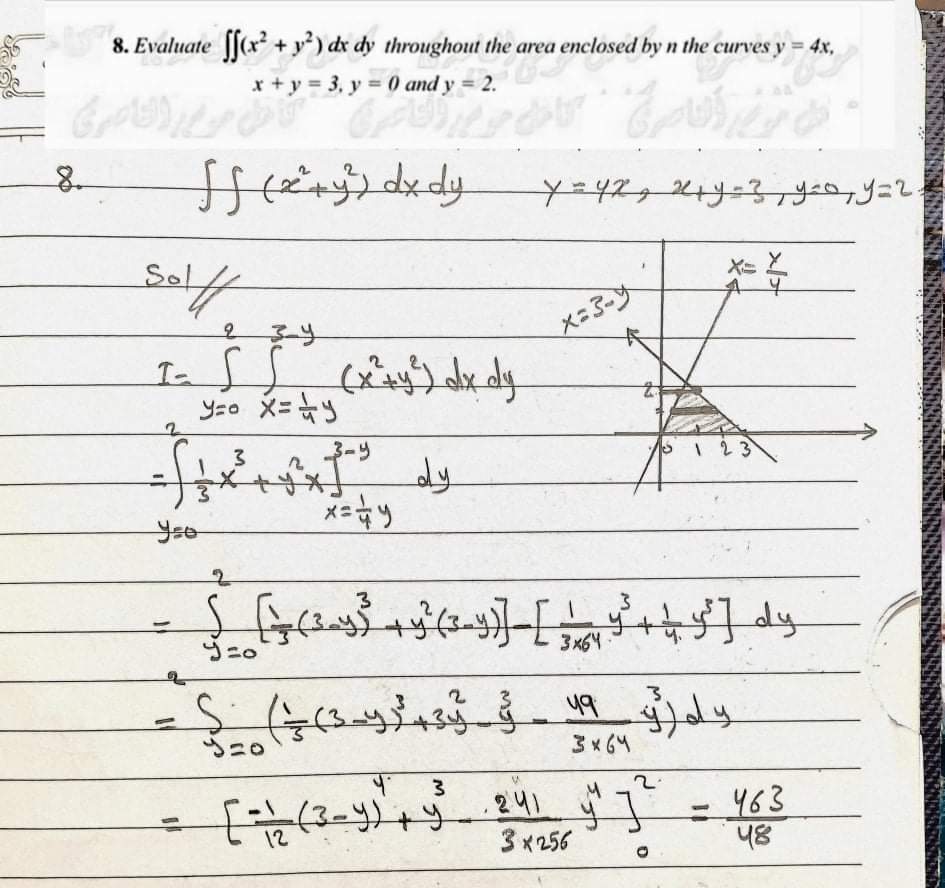 8. Evaluate ∬(x² + y²) dx dy throughout the area enclosed by n the curves y = 4x,
x + y = 3, y = 0 and y = 2.
8. ∫∫ (x²+y²) dx dy y = 4x, x+y=3, y=0, y=2
Sol //
x = y/4
x=3-y
2
0 1 2 3
I = ∫_{y=0}^{2} ∫_{x=1/4 y}^{3-y} (x²+y²) dx dy
= ∫_{y=0}^{2} 1/3 x³ + y²x ]_{x=1/4 y}^{3-y} dy
= ∫_{y=0}^{2} [1/3 (3-y)³ + y²(3-y)] - [1/(3×64) y³ + 1/4 y³] dy
= ∫_{y=0}^{2} (1/3 (3-y)³ + 3y² - y³ - 49/(3×64) y³) dy
= [-1/12 (3-y)⁴ + y³ - 241/(3×256) y⁴ ]_{0}^{2} = 463/48